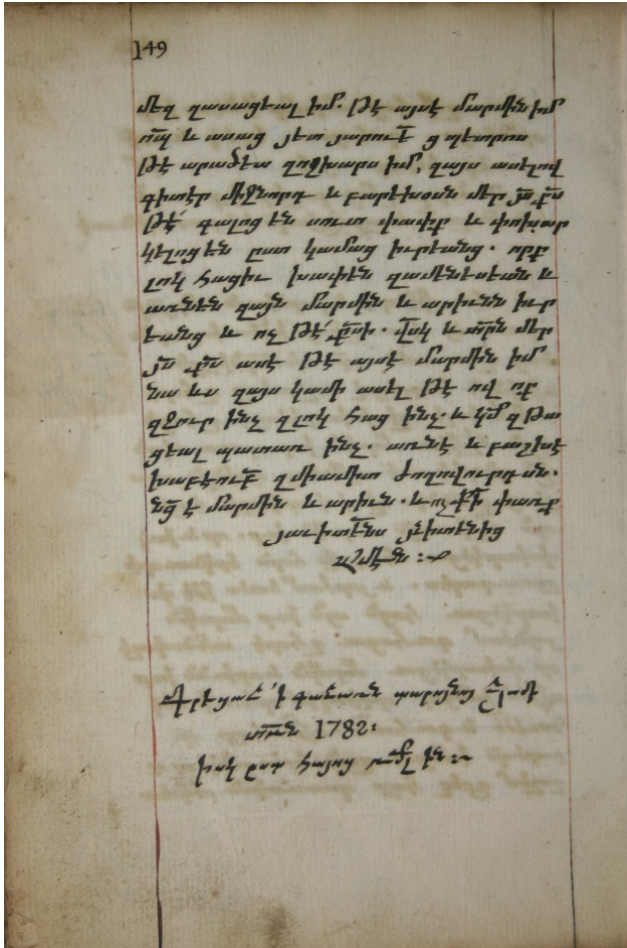 149
մեզ զասացեալ իմ. Թէ այսէ մարմին իմ
և ասաց յետ յարուէ ց պետրոս
Թէ արածեա զոչխարս իմ, զայս ասելով
գիտէր միջնորդ և բարեխօսն մեր յս քս
Թէ գալոց են սուտ փափք և փոխար
կելոց են ըստ կամաց իւրեանց. որք
լոկ հացիւ խափեն զամենեսեան և
առնեն զայն մարմին և արիւնն իւր
եանց և ոչ Թէ քսի. Իսկ և տրն մեր
յս քս ասէ Թէ այսէ մարմին իմ
նա ևս զայս կամի ասել Թէ ով ոք
զջուր ինչ զլոկ հաց ինչ. և կմ զԹա
ցեալ պատառ ինչ. առնէ և բաշխէ
խաբէութբ զմիամիտ ժողովուրդսն.
նց է մարմին և արիւն. և ոչ քի փառք
յաւիտենս յւիտենից
Ամէն :
Գրեցաւ ՛ի գաւառն պարոյնոյ
տռն 1782։
իսկ ըստ հայոց ին :